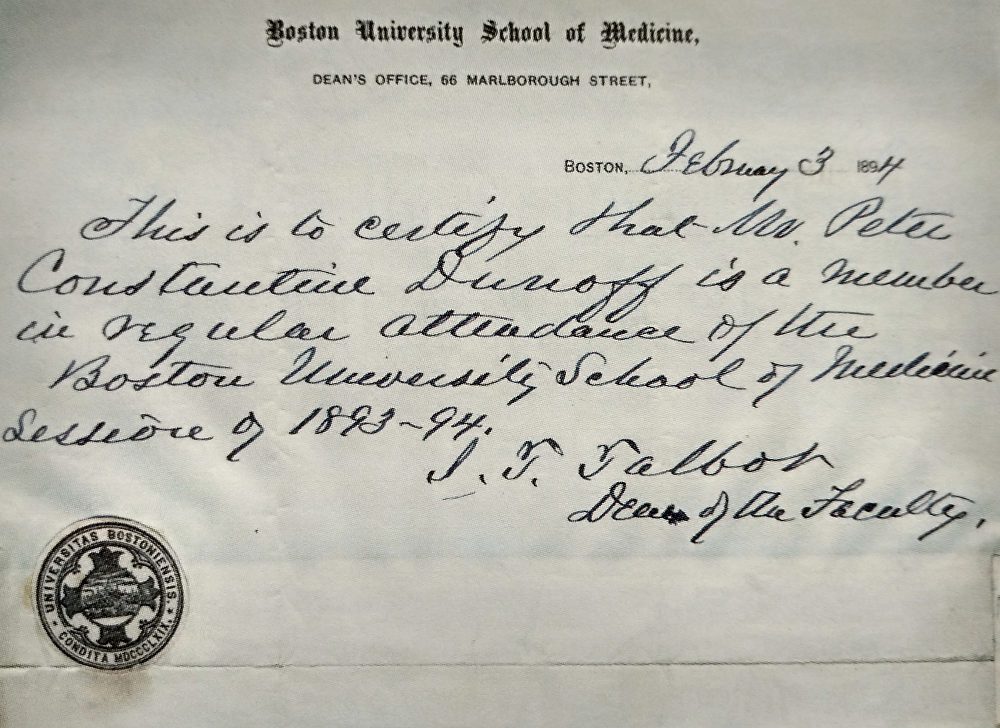 Boston University School of Medicine,
DEAN'S OFFICE, 66 MARLBOROUGH STREET,
BOSTON, February 3 1894
This is to certify that Mr. Peter
Constantine Dunoff is a member
in regular attendance of the
Boston University School of Medicine
Session of 1893-94.
I. T. Talbot
Dean of the Faculty.
UNIVERSITAS BOSTONIENSIS.
CONDITA MDCCCLXIX.